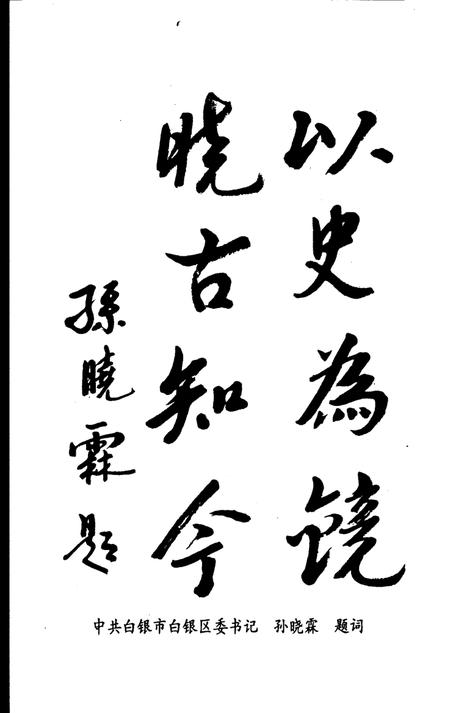 以史為鏡
晓古知今
孫曉霖题
中共白银市白银区委书记 孙晓霖 题词